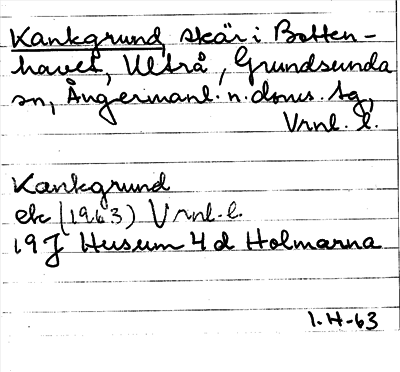 Kankgrund, skär i Botten-
havet, Ultrå, Grundsunda
sn, Ångermanl. n. doms. tg,
Vrnl. l.
Kankgrund
ek (1963) Vrnl. l.
19 J Husum 4 d Holmarna
I. H-63